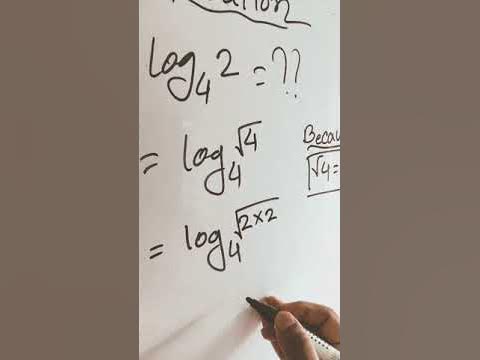 log₄2 = ??
= log₄√4
Becau
√4 =
= log₄√2×2